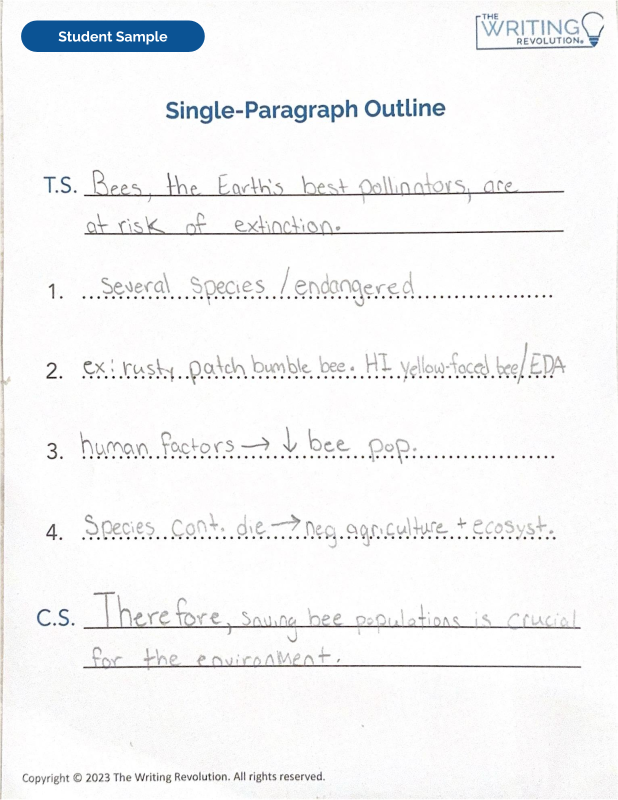 Student Sample
THE
WRITING
REVOLUTION®
Single-Paragraph Outline
T.S. Bees, the Earth's best pollinators, are
at risk of extinction.
1. Several species / endangered
2. ex: rusty patch bumble bee. HI yellow-faced bee/EDA
3. human factors → ↓ bee pop.
4. Species cont. die → neg agriculture + ecosyst.
C.S. Therefore, saving bee populations is crucial
for the environment.
Copyright © 2023 The Writing Revolution. All rights reserved.